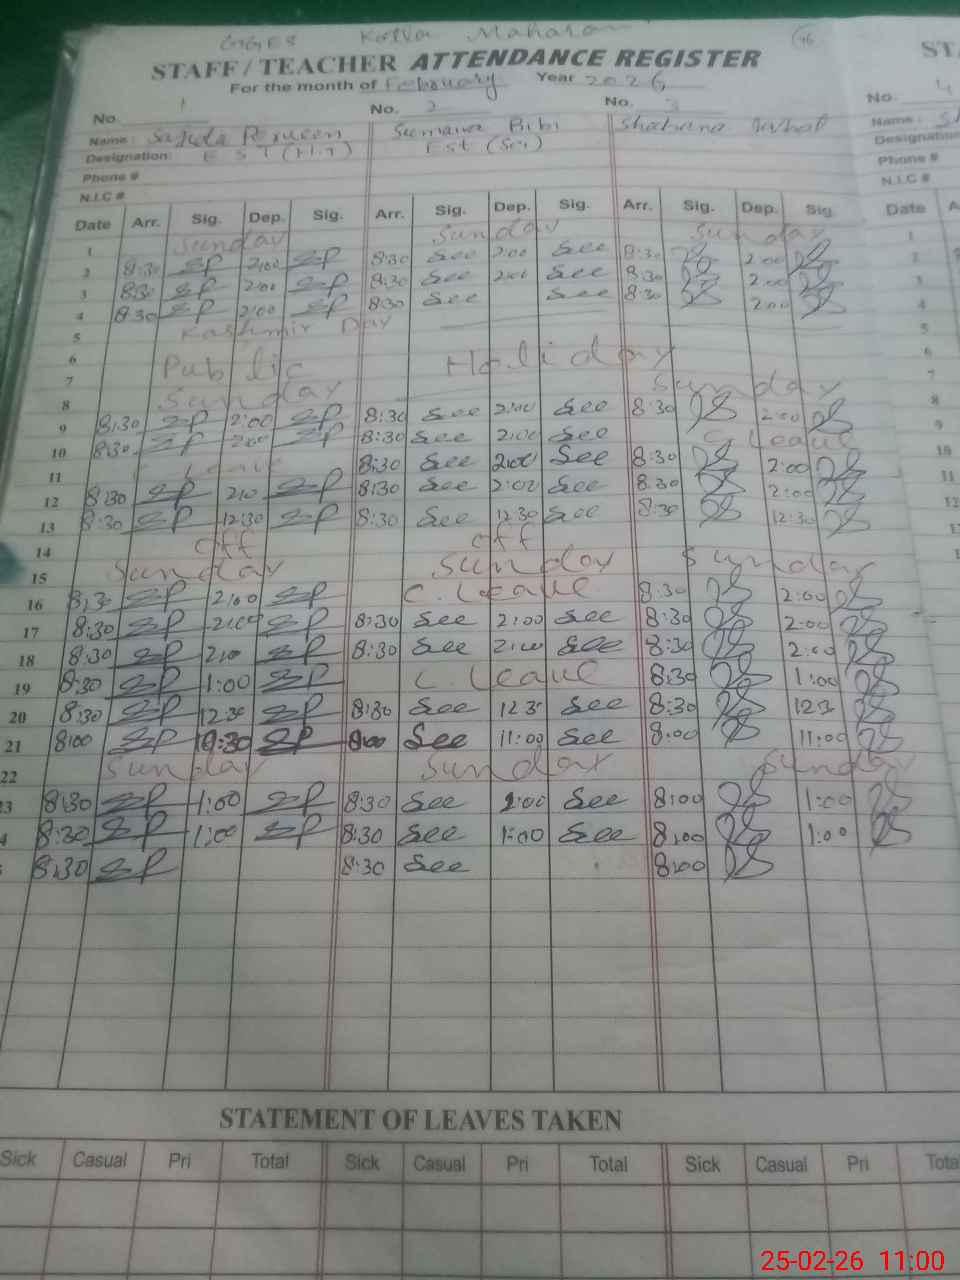 GGES Kotla Maharan
STAFF/TEACHER ATTENDANCE REGISTER
For the month of February Year 2026
No. 1 No. 2 No. 3 No. 4
Name: Sajida Perveen Sumaira Bibi Shabana Name:
Designation: EST (H.T) Est (Sci) Designation
Phone # Phone #
N.I.C # N.I.C #
Date Arr. Sig. Dep. Sig. Arr. Sig. Dep. Sig. Arr. Sig. Dep. Sig. Date
1 Sunday Sunday Sunday 1
2 8:30 SP 2:00 SP 8:30 See 2:00 See 8:30 2:00 2
3 8:30 SP 2:00 SP 8:30 See 2:00 See 8:30 2:00 3
4 8:30 SP 2:00 SP 8:30 See See 8:30 2:00 4
5 Kashmir Day 5
6 Public Holiday 6
7 7
8 Sunday Sunday 8
9 8:30 SP 2:00 SP 8:30 See 2:00 See 8:30 2:00 9
10 8:30 SP 2:00 SP 8:30 See 2:00 See C Leave 10
11 Leave 8:30 See 2:00 See 8:30 2:00 11
12 8:30 SP 2:0 SP 8:30 See 2:00 See 8:30 2:00 12
13 8:30 SP 12:30 SP 8:30 See 12:30 See 8:30 12:30
14 Off Off
15 Sunday Sunday Sunday
16 8:30 SP 2:00 SP C. Leave 8:30 2:00
17 8:30 SP 2:00 SP 8:30 See 2:00 See 8:30 2:00
18 8:30 SP 2:00 SP 8:30 See 2:00 See 8:30 2:00
19 8:30 SP 1:00 SP C. Leave 8:30 1:00
20 8:30 SP 12:30 SP 8:30 See 12:3 See 8:30 12:3
21 8:00 SP SP 8:00 See 11:00 See 8:00 11:00
22 Sunday Sunday Sunday
3 8:30 SP 1:00 SP 8:30 See 1:00 See 8:00 1:00
4 8:30 SP 1:00 SP 8:30 See 1:00 See 8:00 1:00
8:30 SP 8:30 See 8:00
STATEMENT OF LEAVES TAKEN
Sick Casual Pri Total Sick Casual Pri Total Sick Casual Pri Total
25-02-26 11:00